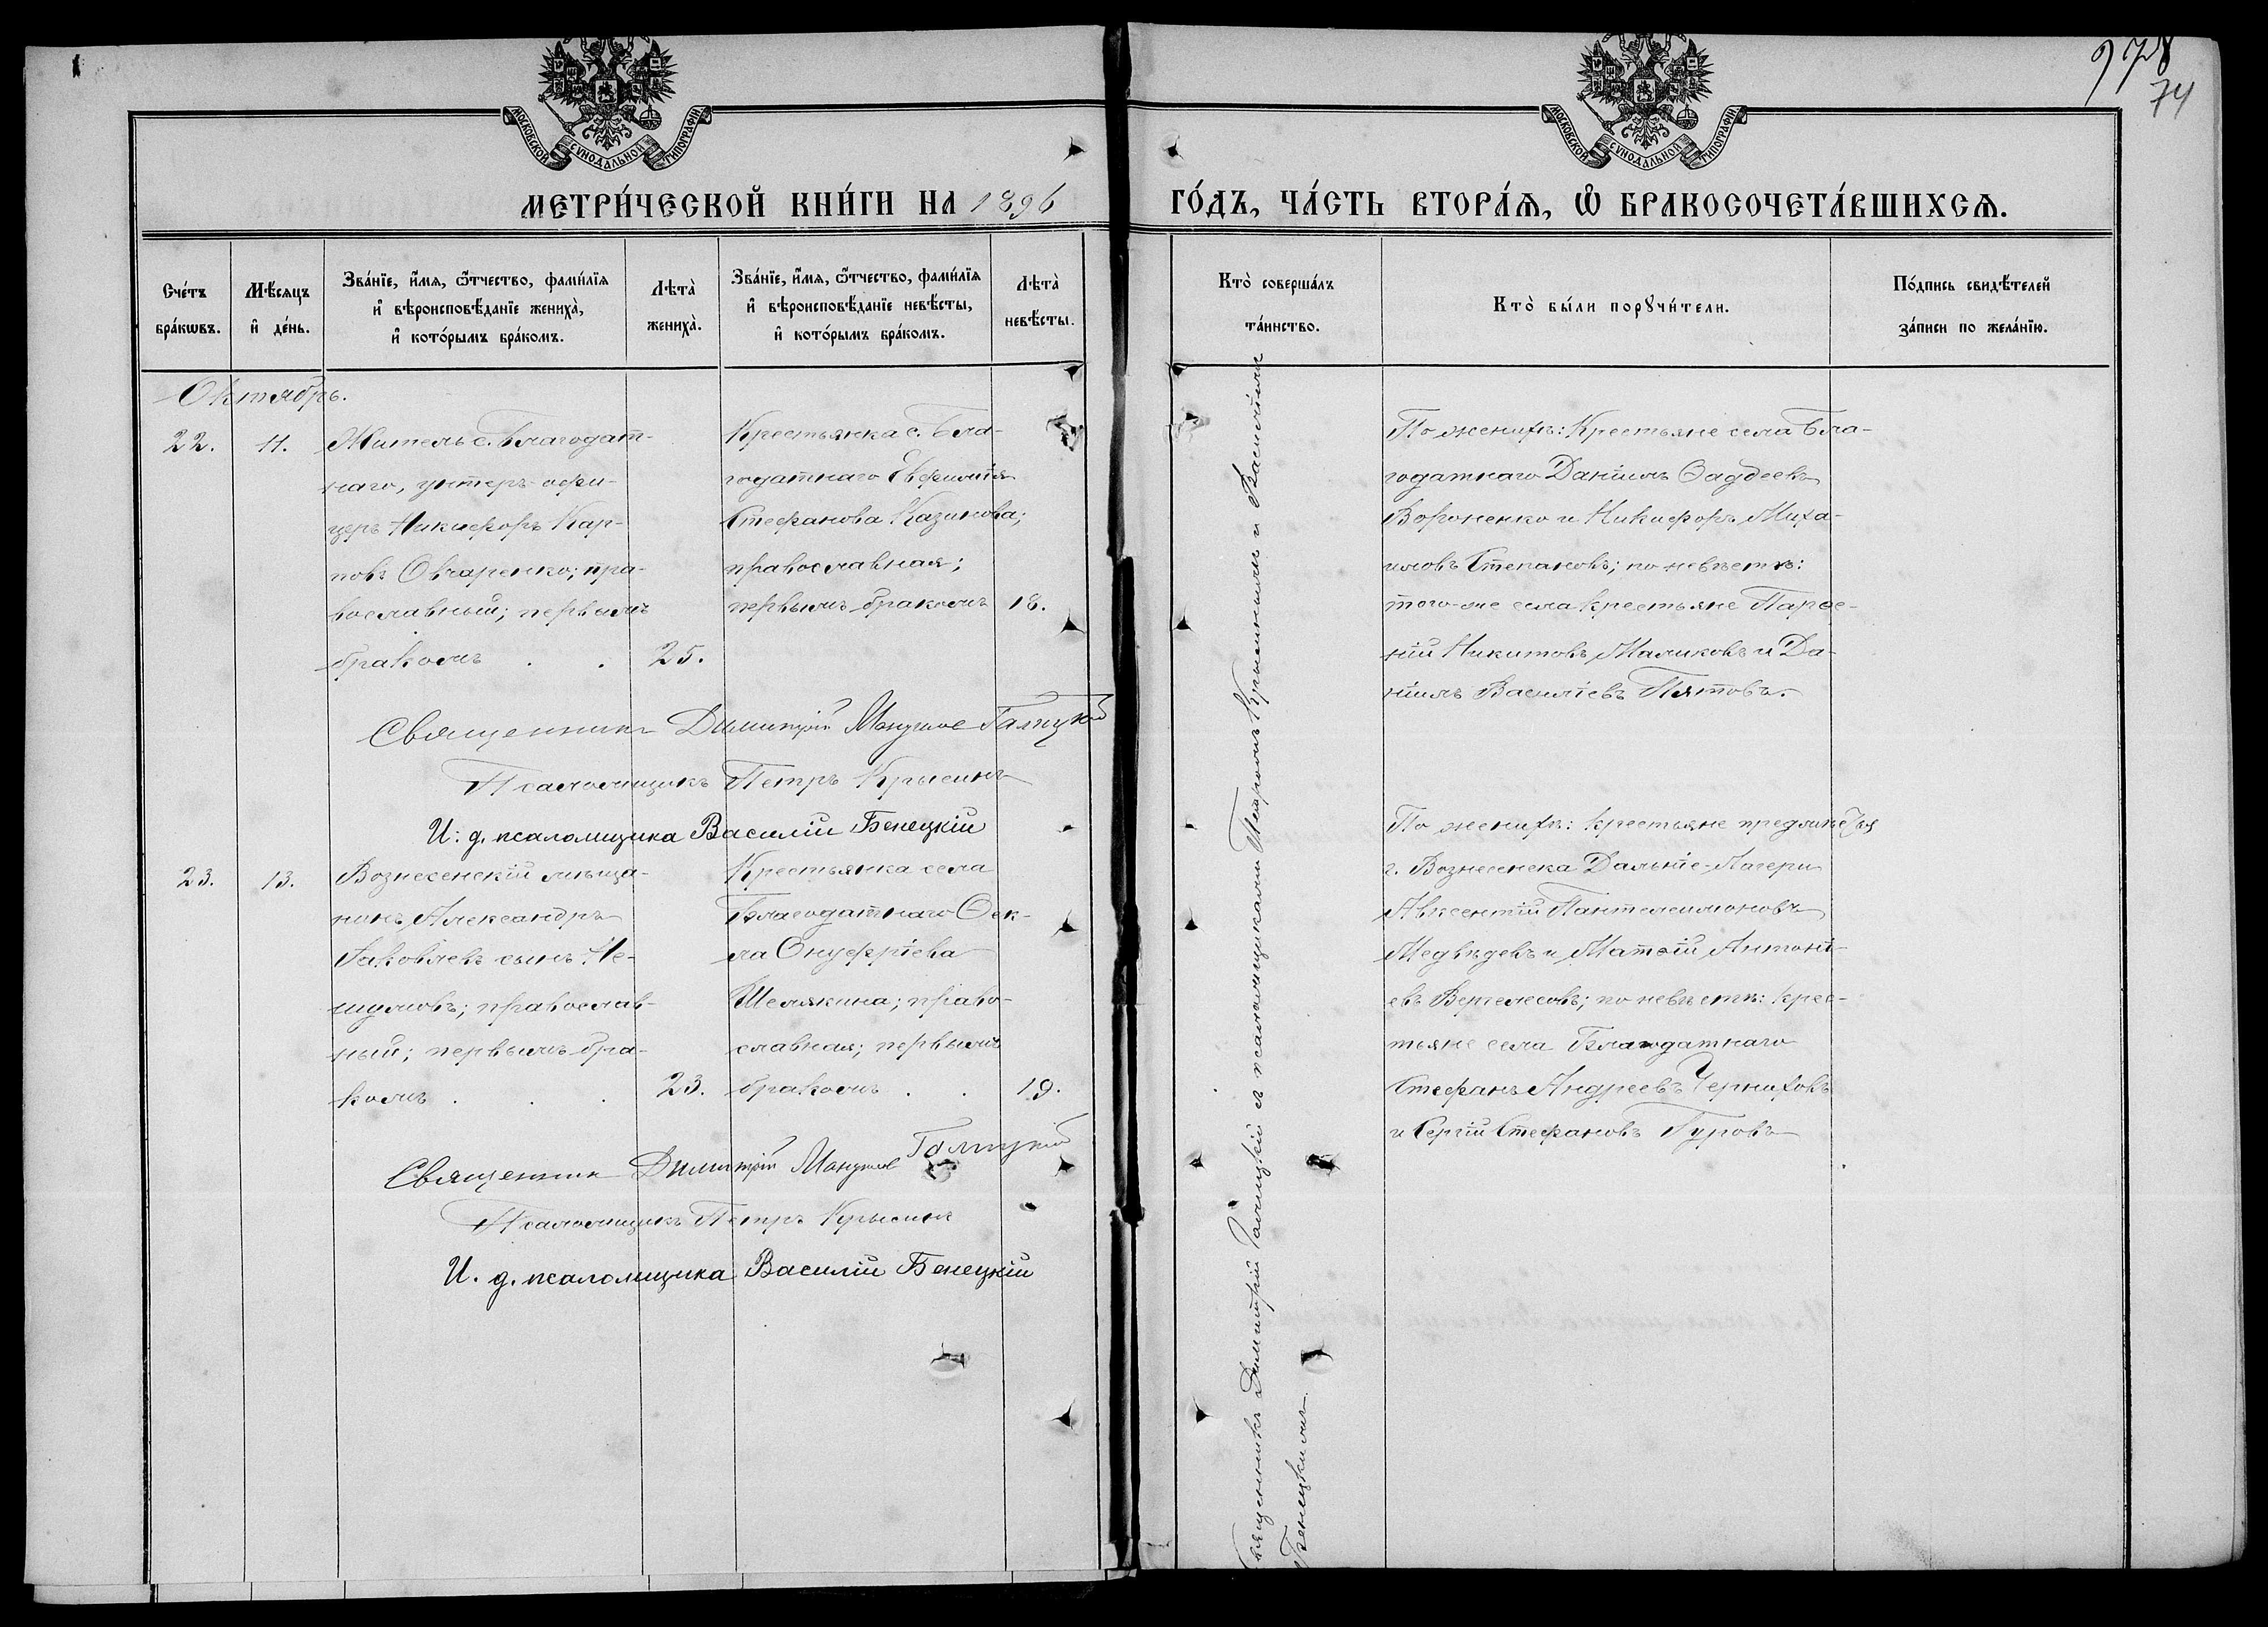 978
74
МОСКОВСКОЙ СѴНОДАЛЬНОЙ ТИПОГРАФІИ
МОСКОВСКОЙ СѴНОДАЛЬНОЙ ТИПОГРАФІИ
МЕТРИ́ЧЕСКОЙ КНИ́ГИ НА 1896 ГО́ДЪ, ЧА́СТЬ ВТОРА́Ѧ, Ѽ БРАКОСОЧЕТА́ВШИХСѦ.
Сче́тъ
бра́кѡвъ.
Мѣ́сѧцъ
и҆ де́нь.
Зва́нїе, и҆́мѧ, ѻ҆́тчество, фами́лїѧ
и҆ вѣроисповѣ́данїе жениха̀,
и҆ кото́рымъ бра́комъ.
Лѣта̀
жениха̀.
Зва́нїе, и҆́мѧ, ѻ҆́тчество, фами́лїѧ
и҆ вѣроисповѣ́данїе невѣ́сты,
и҆ кото́рымъ бра́комъ.
Лѣта̀
невѣ́сты.
Кто̀ соверша́лъ
та́инство.
Кто̀ бы́ли порꙋчи́тели.
По́дпись свидѣ́телей
за́писи по жела́нїю.
Октябрь.
22.
11.
Житель с. Благодат-
наго, унтеръ-офи-
церъ Никифоръ Кар-
повъ Овчаренко; пра-
вославный; первымъ
бракомъ . .
25.
Крестьянка с. Бла-
годатнаго Евфимія
Стефанова Казинова;
православная;
первымъ бракомъ
18.
По женихѣ: Крестьяне села Бла-
годатнаго Даніилъ Ѳаддеевъ
Вороненко и Никифоръ Миха-
иловъ Степановъ; по невѣстѣ:
того-же села крестьяне Парѳе-
ній Никитовъ Маликовъ и Да-
ніилъ Василіевъ Пятовъ.
Священникъ Димитрій Галицкій
Псаломщикъ Петръ Крысинъ
И: д. псаломщика Василій Бенецкій
23.
13.
Вознесенскій мѣща-
нинъ Александръ
Іаковлевъ сынъ Не-
шумовъ; православ-
ный; первымъ бра-
комъ . . .
23.
Крестьянка села
Благодатнаго Ѳек-
ла Онуфріева
Шелякина; право-
славная; первымъ
бракомъ . .
19.
По женихѣ: крестьяне предмѣстья
г. Вознесенска Дальніе-Лагери
Авксентій Пантелеимоновъ
Медвѣдевъ и Матѳій Антоні-
евъ Вергелесовъ; по невѣстѣ: крес-
тьяне села Благодатнаго
Стефанъ Андреевъ Черниховъ
и Сергій Стефановъ Гуровъ
Священникъ Димитрій Галицкій
Псаломщикъ Петръ Крысинъ
И. д. псаломщика Василій Бенецкій
Священникъ Димитрій Галицкій съ псаломщиками Петромъ Крысинымъ и Василіемъ
Бенецкимъ.